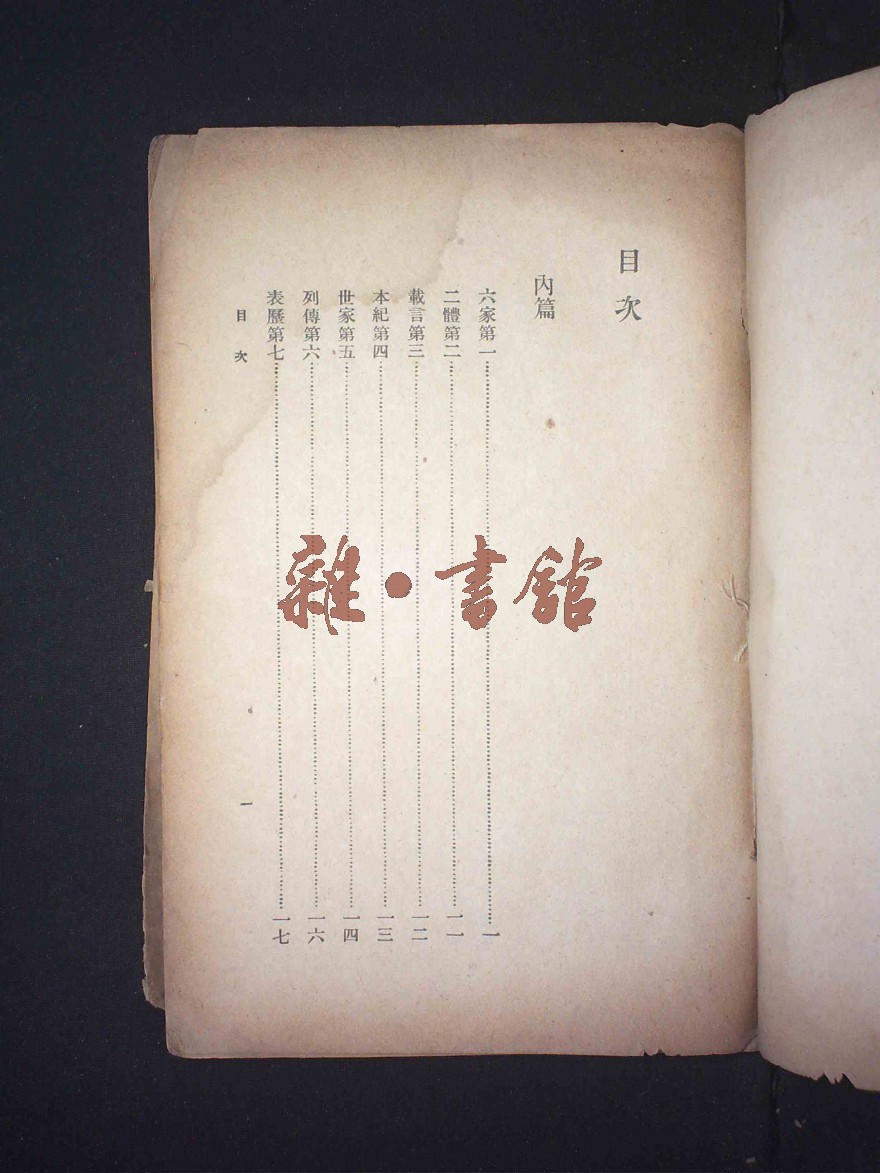 目次
內篇
六家第一……一
二體第二……一一
載言第三……一二
本紀第四……一三
世家第五……一四
列傳第六……一六
表歷第七……一七
目次
一
雜·書館